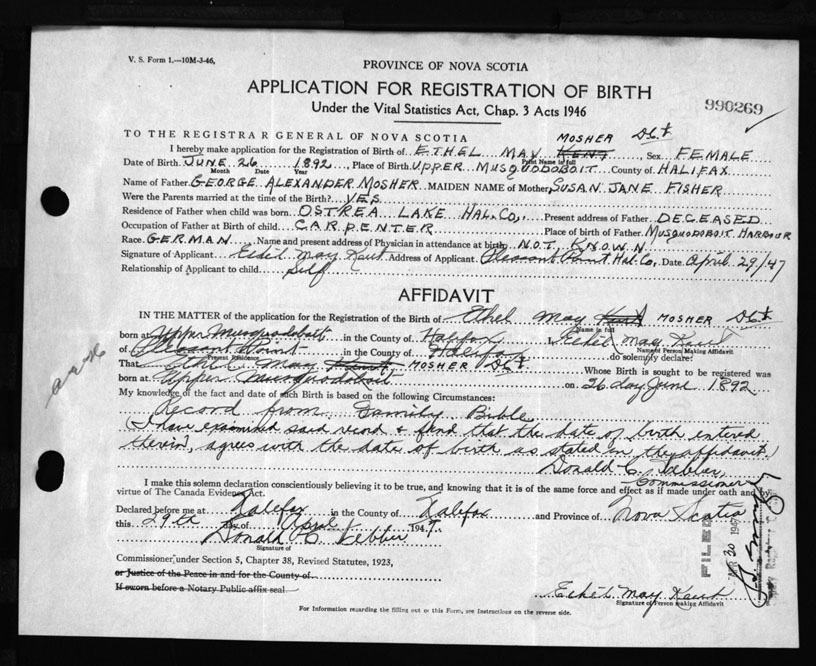 V. S. Form 1.—10M-3-46,
PROVINCE OF NOVA SCOTIA
APPLICATION FOR REGISTRATION OF BIRTH
Under the Vital Statistics Act, Chap. 3 Acts 1946
990269
TO THE REGISTRAR GENERAL OF NOVA SCOTIA MOSHER
I hereby make application for the Registration of Birth of ETHEL MAY KENT, Sex FEMALE
Print Name in full
Date of Birth JUNE 26 1892, Place of Birth UPPER MUSQUODOBOIT County of HALIFAX
Month Date Year
Name of Father GEORGE ALEXANDER MOSHER MAIDEN NAME of Mother SUSAN JANE FISHER
Were the Parents married at the time of the Birth? YES
Residence of Father when child was born OSTREA LAKE HAL. CO., Present address of Father DECEASED
Occupation of Father at Birth of child CARPENTER Place of Birth of Father MUSQUODOBOIT HARBOUR
Race GERMAN Name and present address of Physician in attendance at birth NOT KNOWN
Signature of Applicant Ethel May Kent Address of Applicant Pleasant Point Hal. Co, Date April 29/47
Relationship of Applicant to child Self
AFFIDAVIT
IN THE MATTER of the application for the Registration of Birth of Ethel May Kent MOSHER
Name in full
born at Upper Musquodoboit in the County of Halifax I Ethel May Kent
Name of Person Making Affidavit
of Pleasant Point in the County of Halifax do solemnly declare:
Present Residence
That Ethel May Kent MOSHER Whose Birth is sought to be registered was
born at Upper Musquodoboit on 26 day June 1892
My knowledge of the fact and date of such Birth is based on the following Circumstances:
Record from Family Bible
(I have examined said record & find that the date of birth entered
therein, agrees with the date of birth as stated in the affidavit.)
Donald C.
Commissioner
I make this solemn declaration conscientiously believing it to be true, and knowing that it is of the same force and effect as if made under oath and by
virtue of The Canada Evidence Act.
Declared before me at Halifax in the County of Halifax and Province of Nova Scotia
this 29th day of April 1947
Donald C.
Signature of
Commissioner under Section 5, Chapter 38, Revised Statutes, 1923,
or Justice of the Peace in and for the County of
If sworn before a Notary Public affix seal
FILED
APR 30 1947
Ethel May Kent
Signature of Person making Affidavit
For Information regarding the filling out of this Form, see Instructions on the reverse side.